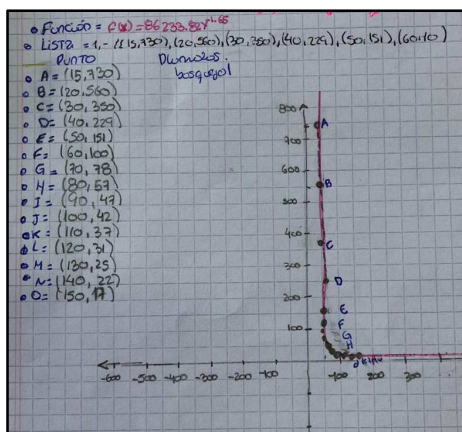 Función = f(x) = 86233.82x^-1.65
Lista = 1, - {(15,730), (20,560), (30,350), (40,229), (50,151), (60,10)
PUNTO
A = (15,730)
B = (20,560)
C = (30,350)
D = (40,229)
E = (50,151)
F = (60,100)
G = (70,78)
H = (80,57)
I = (90,47)
J = (100,42)
K = (110,37)
L = (120,31)
M = (130,25)
N = (140,22)
O = (150,17)
800
700
600
500
400
300
200
100
A
B
C
D
E
F
G
H
-600 -500 -400 -300 -200 -100 100 200 300